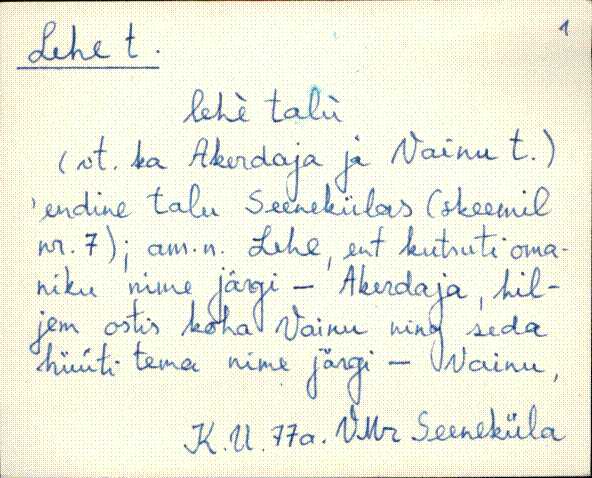 1
Lehe t.
lehè talù
(vt. ka Akerdaja ja Vainu t.)
'endine talu Seenekülas (skeemil
nr. 7); am.n. Lehe, ent kutsuti oma-
niku nime järgi – Akerdaja, hil-
jem ostis koha Vainu ning seda
hüüti tema nime järgi – Vainu,
K.U. 77a. VMr Seeneküla